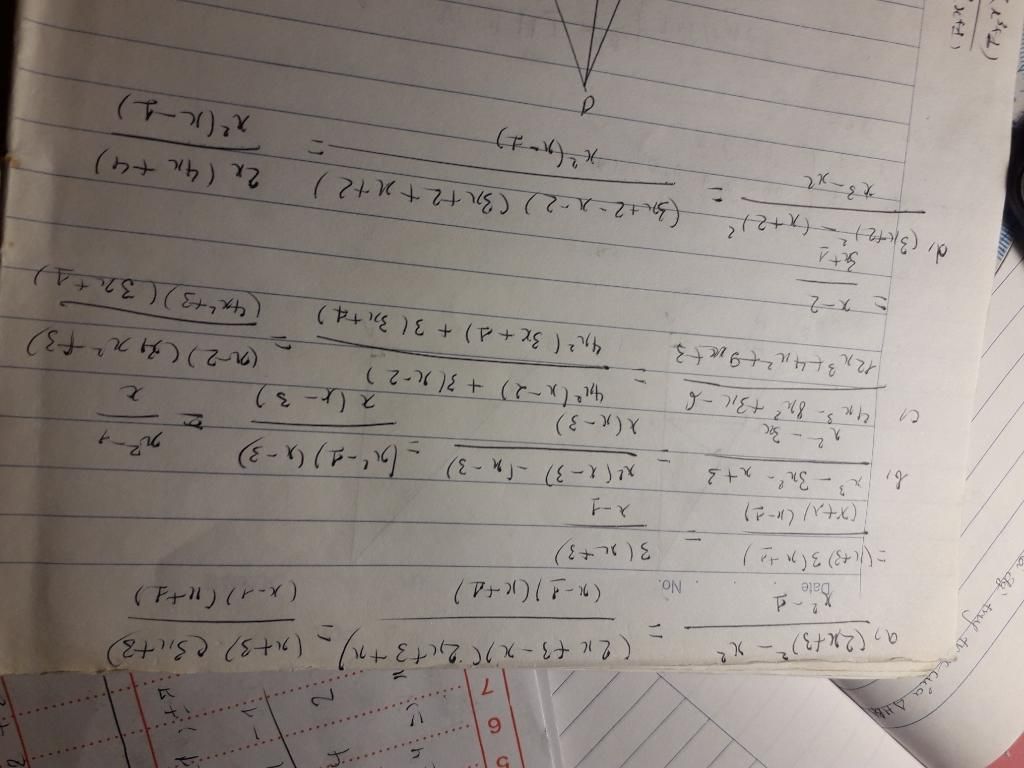 a, ((2x+3)² − x²)/(x² − 1) = ((2x+3−x)(2x+3+x))/((x−1)(x+1)) = ((x+3)(3x+3))/((x−1)(x+1))
Date No.
= ((x+3)3(x+1))/((x+1)(x−1)) = 3(x+3)/(x−1)
b, (x³ − 3x² − x + 3)/(x² − 3x) = (x²(x−3) − (x−3))/(x(x−3)) = ((x²−1)(x−3))/(x(x−3)) = (x²−1)/x
c, (4x³ − 8x² + 3x − 6)/(12x³ + 4x² + 9x + 3) = (4x²(x−2) + 3(x−2))/(4x²(3x+1) + 3(3x+1)) = ((x−2)(4x²+3))/((4x²+3)(3x+1))
= (x−2)/(3x+1)
d, ((3x+2)² − (x+2)²)/(x³ − x²) = ((3x+2−x−2)(3x+2+x+2))/(x²(x−1)) = (2x(4x+4))/(x²(x−1))
D
5
6
7